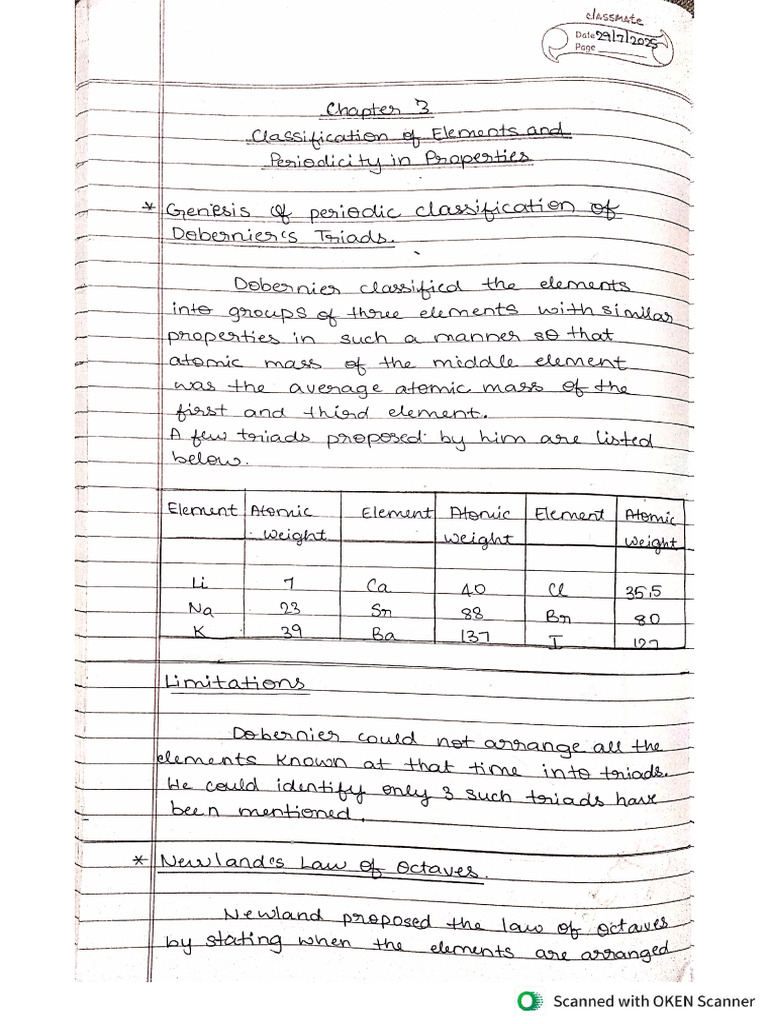 classmate
Date 29/7/2025
Page
Chapter 3
Classification of Elements and
Periodicity in Properties
* Genesis of periodic classification of
Dobernier's Triads.
Dobernier classified the elements
into groups of three elements with similar
properties in such a manner so that
atomic mass of the middle element
was the average atomic mass of the
first and third element.
A few triads proposed by him are listed
below.
Element Atomic weight Element Atomic weight Element Atomic weight
Li 7 Ca 40 Cl 35.5
Na 23 Sr 88 Br 80
K 39 Ba 137 I 127
Limitations
Dobernier could not arrange all the
elements known at that time into triads.
He could identify only 3 such triads have
been mentioned.
* Newland's Law of Octaves.
Newland proposed the law of octaves
by stating when the elements are arranged
Scanned with OKEN Scanner